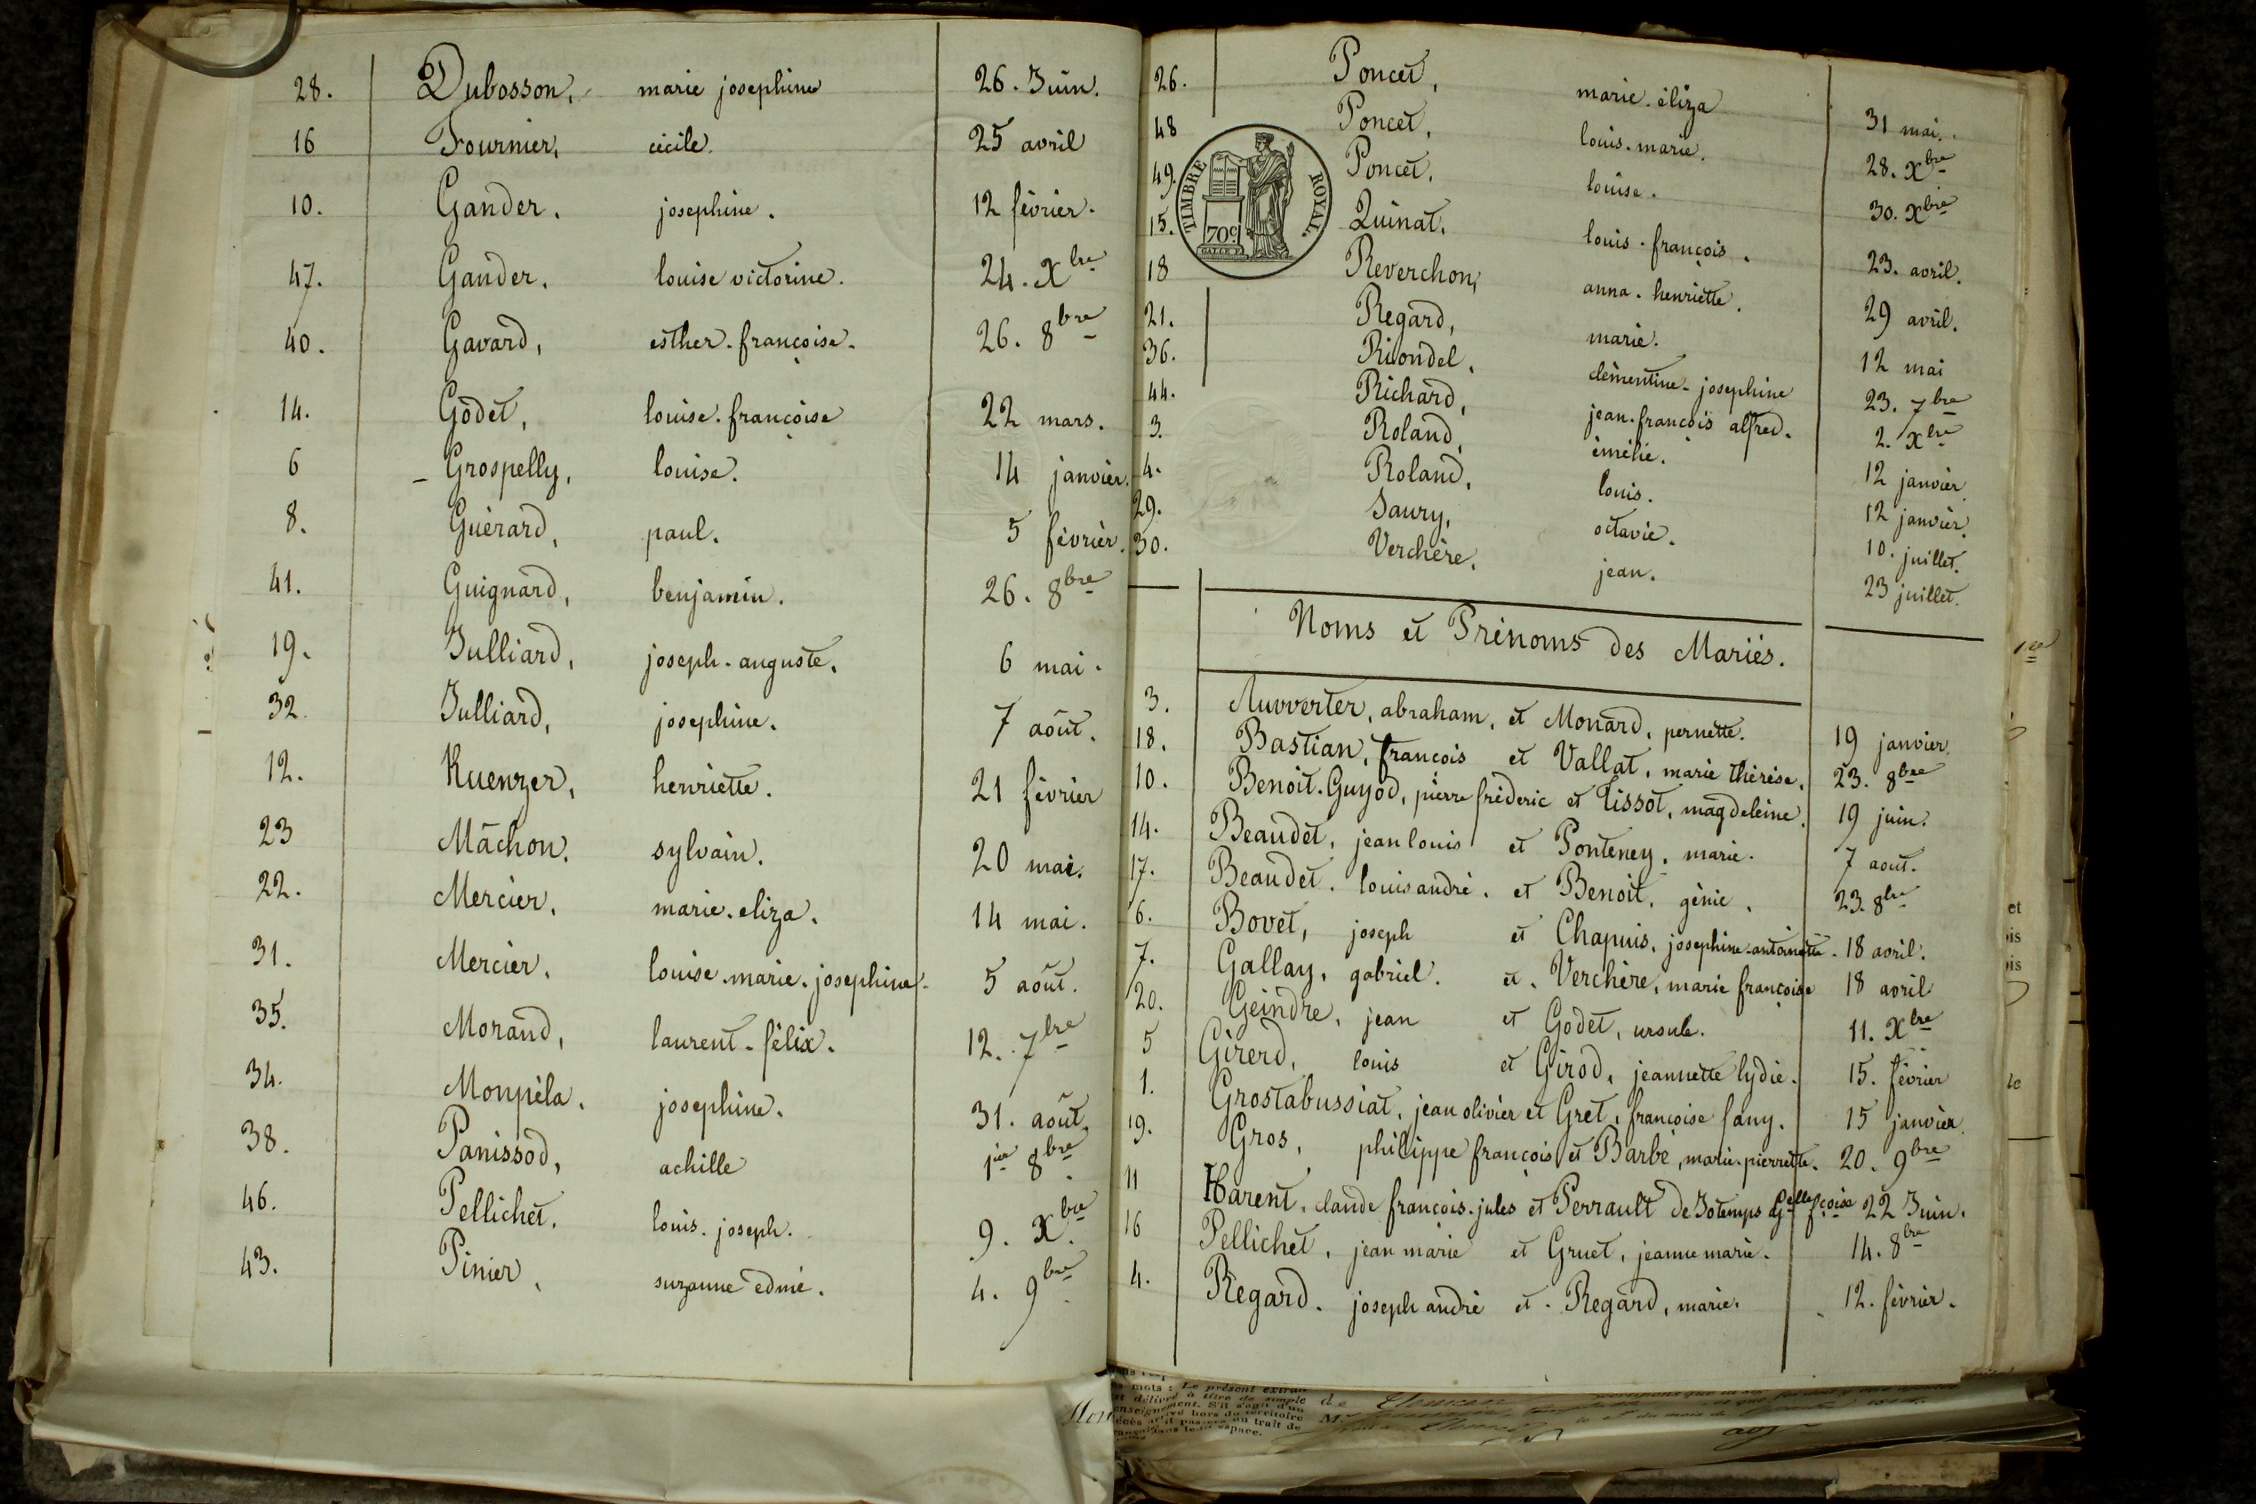 28. Dubosson, marie josephine 26. Juin.
16 Fournier, cécile. 25 avril
10. Gander. josephine. 12 février.
47. Gander. louise victorine. 24. Xbre
40. Gavard, esther. françoise. 26. 8bre
14. Godet, louise. françoise 22 mars.
6 – Grospelly, louise. 14 janvier.
8. Guérard, paul. 5 février.
41. Guignard, benjamin. 26. 8bre
19. Julliard, joseph. auguste. 6 mai.
32. Julliard, josephine. 7 août.
12. Kuenzer, henriette. 21 février
23 Mâchon. sylvain. 20 mai.
22. Mercier. marie. eliza. 14 mai.
31. Mercier. louise. marie. josephine. 5 août.
35. Morand, laurent. félix. 12. 7bre
34. Monpéla. josephine. 31. août.
38. Panissod, achille 1ier 8bre
46. Pellichet. louis. joseph. 9. Xbre
43. Pinier, suzanne edmé. 4. 9bre
26. Poncet, marie. éliza 31 mai.
48 Poncet, louis. marie. 28. Xbre
49. Poncet, louise. 30. Xbre
15. Quinat. louis. françois. 23. avril.
18 Reverchon, anna. henriette. 29 avril.
21. Regard, marie. 12 mai
36. Riondel. clémentine. josephine 23. 7bre
44. Richard, jean. françois alfred. 2. Xbre
3. Roland, émélie. 12 janvier.
4. Roland, louis. 12 janvier.
29. Saury, octavie. 10. juillet.
30. Verchère. jean. 23 juillet.
TIMBRE ROYAL.
70c
Noms et Prénoms des Mariés.
3. Auvverter, abraham, et Monard, pernette. 19 janvier.
18. Bastian, françois et Vallat, marie thérèse. 23. 8bre
10. Benoit. Guyod, pierre fréderic et Tissot, magdeleine. 19 juin.
14. Beaudet, jean louis et Ponteney, marie. 7 aout.
17. Beaudet. louis andré. et Benoit, génie. 23. 8bre
6. Bovet, joseph et Chapuis. josephine. antoinette. 18 avril.
7. Gallay, gabriel. et. Verchère, marie françoise 18 avril
20. Geindre, jean et Godet, ursule. 11. Xbre
5 Girerd, louis et Girod, jeannette lydie. 15. février
1. Grostabussiat, jean olivier et Gret, françoise fany. 15 janvier.
19. Gros, philippe françois et Barbé, marie. pierrette. 20. 9bre
11 Harent, claude françois. jules et Perrault de Jotemps Gelle fçoise 22 Juin.
16 Pellichet, jean marie et Gruet, jeanne marie. 14. 8bre
4. Regard. joseph andré et. Regard, marie. 12. février.